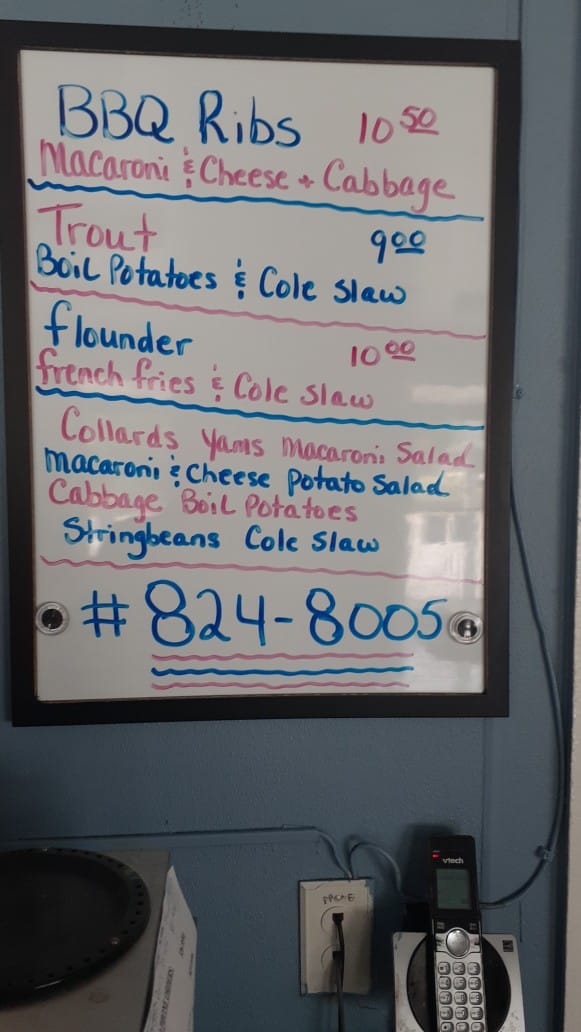 BBQ Ribs 10 50
Macaroni & Cheese + Cabbage
Trout 9 00
Boil Potatoes & Cole Slaw
flounder 10 00
french fries & Cole Slaw
Collards Yams Macaroni Salad
Macaroni & Cheese Potato Salad
Cabbage Boil Potatoes
Stringbeans Cole Slaw
# 824-8005
vtech
PHONE